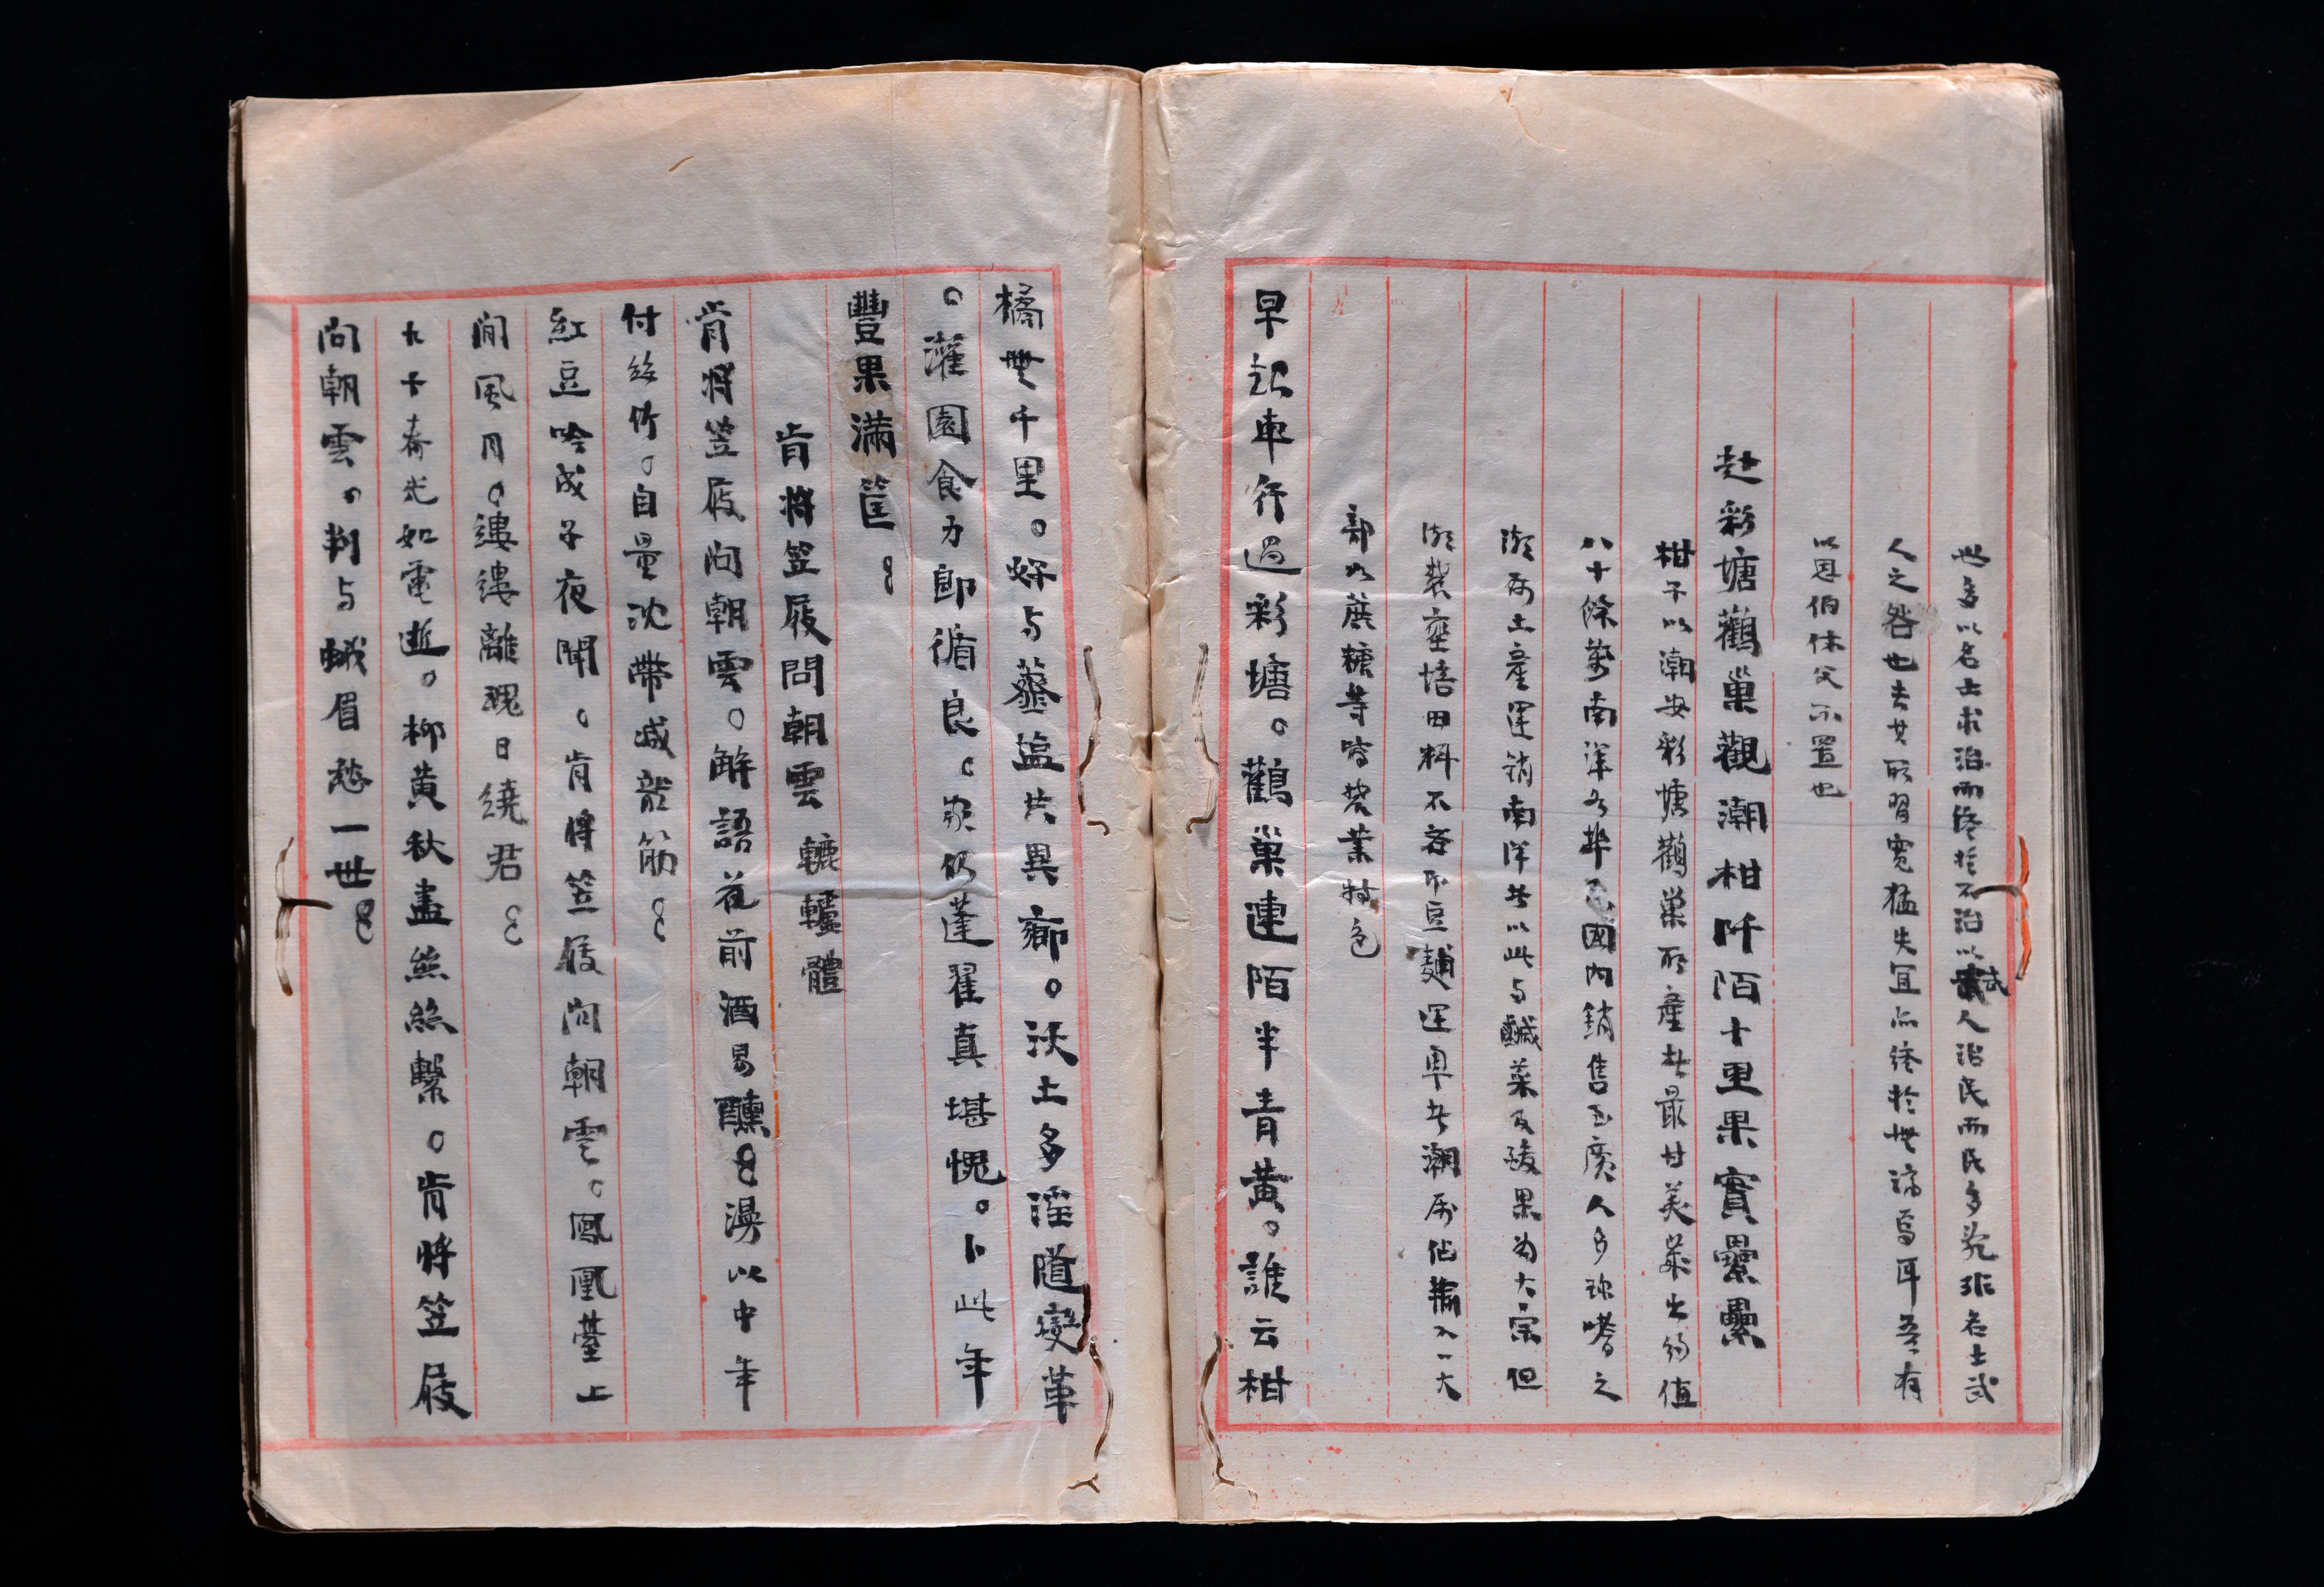 世多以名士求治而終於不治以武人治民而民多死非名士武
人之咎也去其所習寬猛失宜亦終於世論焉耳吾有
以思伯休父不置也
赴彩塘鸛巢觀潮柑阡陌十里果實纍纍
柑子以潮安彩塘鸛巢所產者最甘美歲出約值
八十餘萬南洋各埠及國內銷售至廣人多珍嗜之
潮屬土產運銷南洋者以此與鹹菜及菠果為大宗但
潮農培田料不吝所豆麵運單者潮屬佔輸入一大
部如蔗糖等皆農業特色
早起車行過彩塘。鸛巢連陌半青黃。誰云柑
橘無千里。好与薑塩共異鄉。沃土多淫隨變革
。灌園食力即循良。家仍蓬藋真堪愧。卜此年
豐果滿筐。
肯將笠屐問朝雲 轆轤體
肯將笠屐問朝雲。解語花前酒易醺。漫以中年
付絲竹。自量沈帶減部筋。
紅豆吟成子夜聞。肯將笠屐問朝雲。鳳凰臺上
閒風月。縷縷離魂日繞君。
九十春光如電逝。柳黃秋盡無絲繫。肯將笠屐
問朝雲。判与蛾眉愁一世。